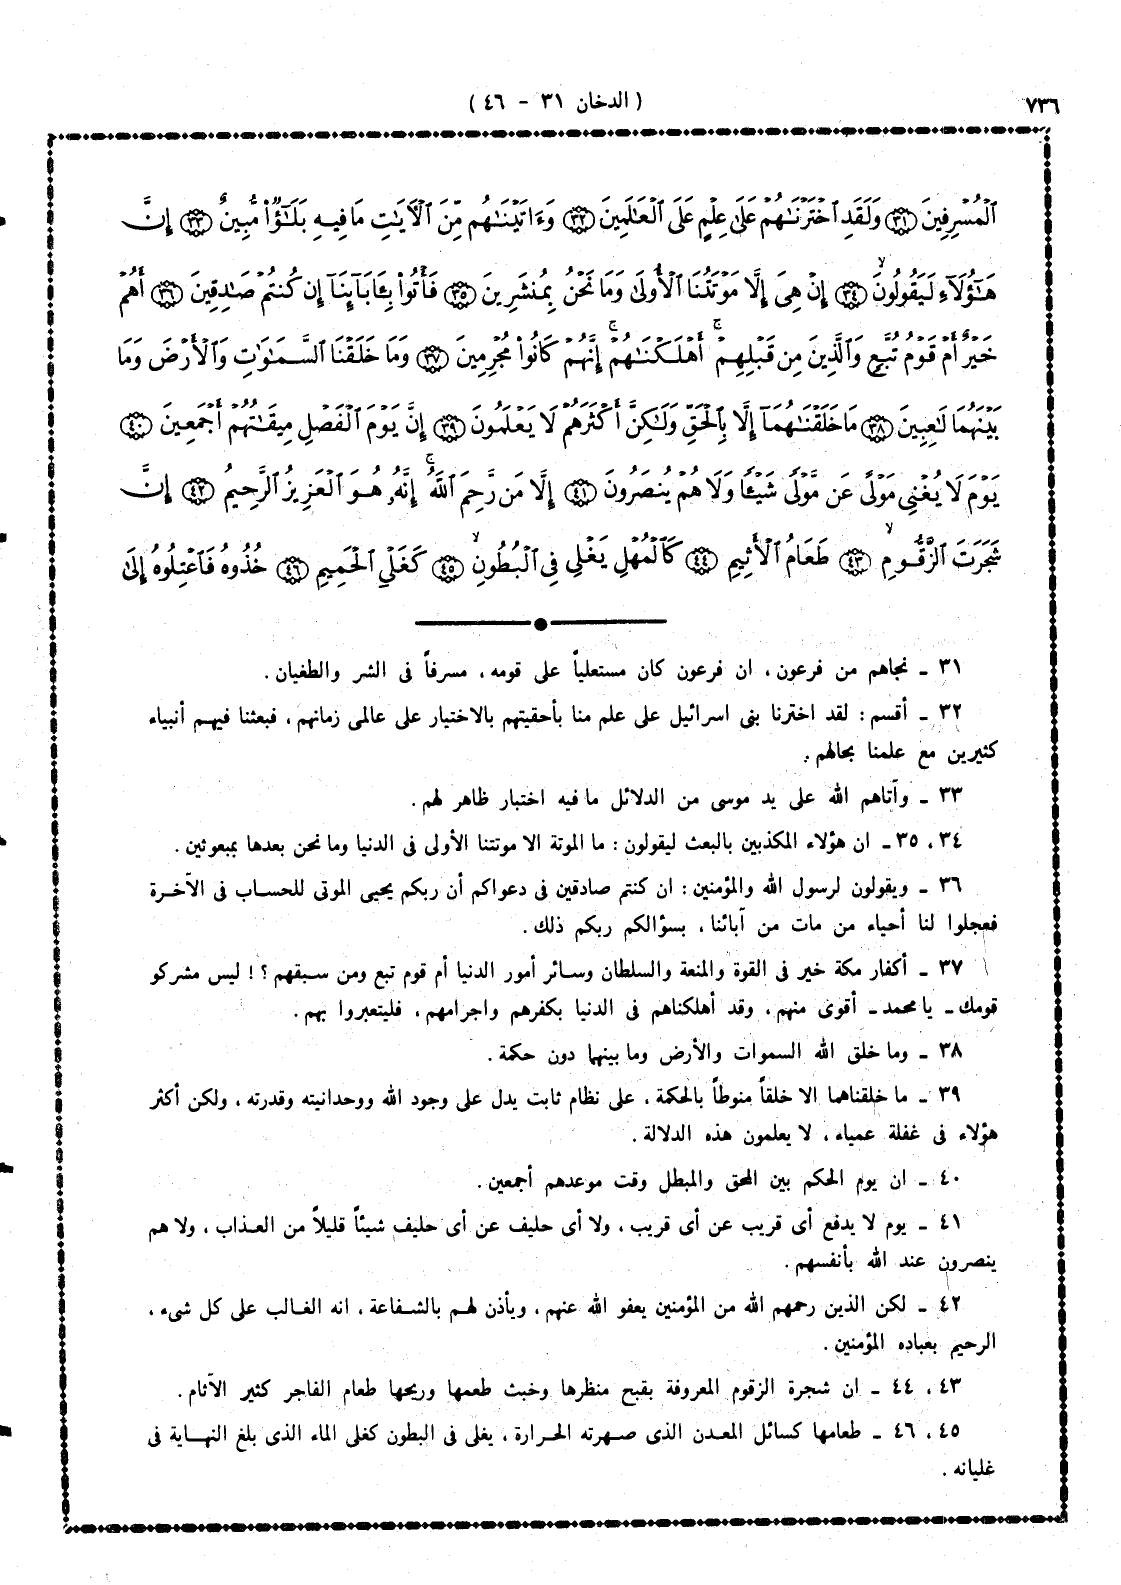 ٧٣٦
( الدخان ٣١ - ٤٦ )
ٱلْمُسْرِفِينَ ٣١ وَلَقَدِ ٱخْتَرْنَٰهُمْ عَلَىٰ عِلْمٍ عَلَى ٱلْعَٰلَمِينَ ٣٢ وَءَاتَيْنَٰهُم مِّنَ ٱلْءَايَٰتِ مَا فِيهِ بَلَٰٓؤٌا۟ مُّبِينٌ ٣٣ إِنَّ
هَٰٓؤُلَآءِ لَيَقُولُونَ ٣٤ إِنْ هِىَ إِلَّا مَوْتَتُنَا ٱلْأُولَىٰ وَمَا نَحْنُ بِمُنشَرِينَ ٣٥ فَأْتُوا۟ بِـَٔابَآئِنَآ إِن كُنتُمْ صَٰدِقِينَ ٣٦ أَهُمْ
خَيْرٌ أَمْ قَوْمُ تُبَّعٍ وَٱلَّذِينَ مِن قَبْلِهِمْ ۚ أَهْلَكْنَٰهُمْ ۚ إِنَّهُمْ كَانُوا۟ مُجْرِمِينَ ٣٧ وَمَا خَلَقْنَا ٱلسَّمَٰوَٰتِ وَٱلْأَرْضَ وَمَا
بَيْنَهُمَا لَٰعِبِينَ ٣٨ مَا خَلَقْنَٰهُمَآ إِلَّا بِٱلْحَقِّ وَلَٰكِنَّ أَكْثَرَهُمْ لَا يَعْلَمُونَ ٣٩ إِنَّ يَوْمَ ٱلْفَصْلِ مِيقَٰتُهُمْ أَجْمَعِينَ ٤٠
يَوْمَ لَا يُغْنِى مَوْلًى عَن مَّوْلًى شَيْـًٔا وَلَا هُمْ يُنصَرُونَ ٤١ إِلَّا مَن رَّحِمَ ٱللَّهُ ۚ إِنَّهُۥ هُوَ ٱلْعَزِيزُ ٱلرَّحِيمُ ٤٢ إِنَّ
شَجَرَتَ ٱلزَّقُّومِ ٤٣ طَعَامُ ٱلْأَثِيمِ ٤٤ كَٱلْمُهْلِ يَغْلِى فِى ٱلْبُطُونِ ٤٥ كَغَلْىِ ٱلْحَمِيمِ ٤٦ خُذُوهُ فَٱعْتِلُوهُ إِلَىٰ
٣١ ـ نجاهم من فرعون ، ان فرعون كان مستعلياً على قومه ، مسرفاً فى الشر والطغيان .
٣٢ ـ أقسم : لقد اخترنا بنى اسرائيل على علم منا بأحقيتهم بالاختيار على عالمى زمانهم ، فبعثنا فيهم أنبياء
كثيرين مع علمنا بحالهم .
٣٣ ـ وآتاهم الله على يد موسى من الدلائل ما فيه اختبار ظاهر لهم .
٣٤ ، ٣٥ ـ ان هؤلاء المكذبين بالبعث ليقولون : ما الموتة الا موتتنا الأولى فى الدنيا وما نحن بعدها بمبعوثين .
٣٦ ـ ويقولون لرسول الله والمؤمنين : ان كنتم صادقين فى دعواكم أن ربكم يحيى الموتى للحساب فى الآخرة
فعجلوا لنا أحياء من مات من آبائنا ، بسؤالكم ربكم ذلك .
٣٧ ـ أكفار مكة خير فى القوة والمنعة والسلطان وسائر أمور الدنيا أم قوم تبع ومن سبقهم ؟! ليس مشركو
قومك ـ يا محمد ـ أقوى منهم ، وقد أهلكناهم فى الدنيا بكفرهم واجرامهم ، فليتعبروا بهم .
٣٨ ـ وما خلق الله السموات والأرض وما بينهما دون حكمة .
٣٩ ـ ما خلقناهما الا خلقاً منوطاً بالحكمة ، على نظام ثابت يدل على وجود الله ووحدانيته وقدرته ، ولكن أكثر
هؤلاء فى غفلة عمياء ، لا يعلمون هذه الدلالة .
٤٠ ـ ان يوم الحكم بين المحق والمبطل وقت موعدهم أجمعين .
٤١ ـ يوم لا يدفع أى قريب عن أى قريب ، ولا أى حليف عن أى حليف شيئاً قليلاً من العذاب ، ولا هم
ينصرون عند الله بأنفسهم .
٤٢ ـ لكن الذين رحمهم الله من المؤمنين يعفو الله عنهم ، ويأذن لهم بالشفاعة ، انه الغالب على كل شىء ،
الرحيم بعباده المؤمنين .
٤٣ ، ٤٤ ـ ان شجرة الزقوم المعروفة بقبح منظرها وخبث طعمها وريحها طعام الفاجر كثير الآثام .
٤٥ ، ٤٦ ـ طعامها كسائل المعدن الذى صهرته الحرارة ، يغلى فى البطون كغلى الماء الذى بلغ النهاية فى
غليانه .